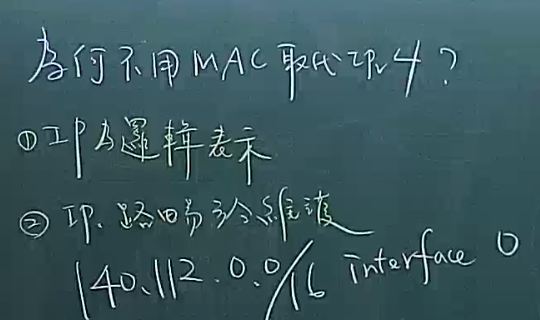 為何不用MAC取代IPv4?
①IP為邏輯表示
②IP.路由易於維護
140.112.0.0/16 interface 0